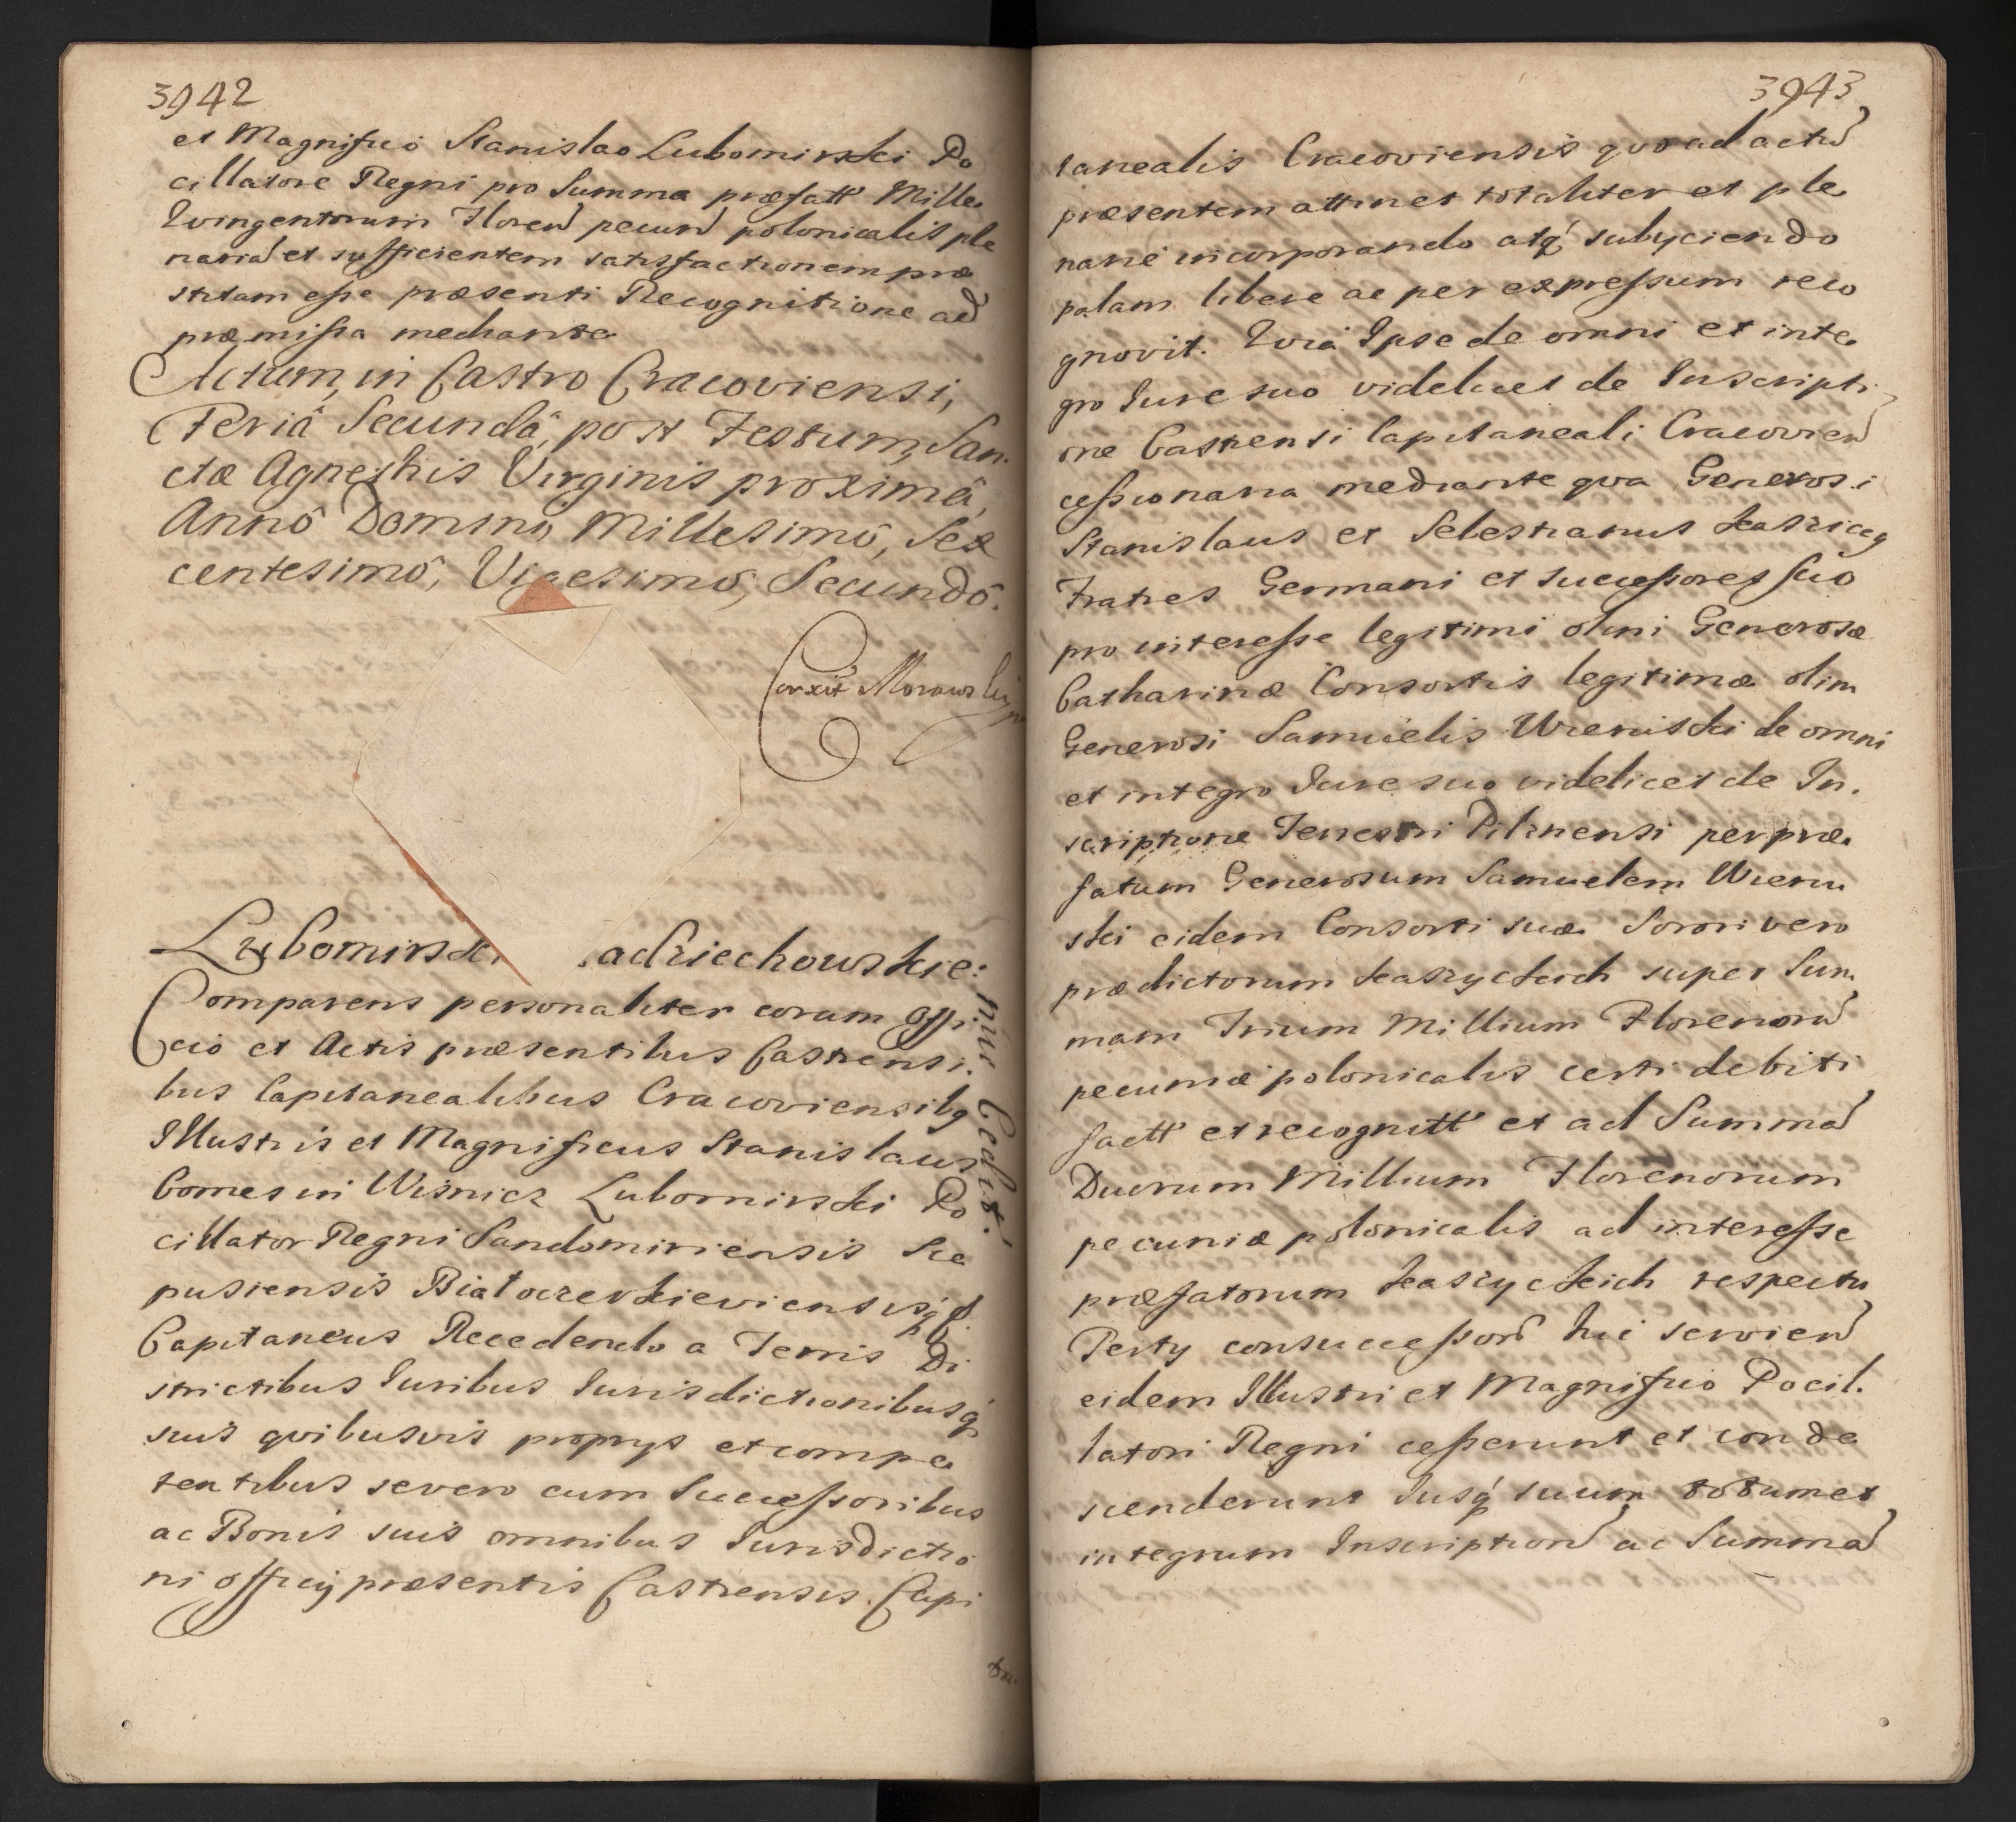 3942
et Magnifico Stanislao Lubomirski Po
cillatore Regni pro Summa præfatt Mille
Qvingentorum Floren pecun polonicalis ple
naria et sufficientem satisfactionem præ
stitam esse præsenti Recognitione ad
præmissa mediante
Actum, in Castro Cracoviensi,
Feriâ Secundâ, post Festum, San
ctæ Agnethis Virginis proximâ,
Annô Domini, Millesimô, Sex
centesimô, Vigesimô, Secundô.
Corxit Morawski
Lubomirsk adziechowskie:
nie Cedit.
Comparens personaliter coram offi
cio et Actis præsentibus Castrensi.
bus Capitanealibus Cracoviensibq
Illustris et Magnificus Stanislaus
Comes in Wisnicz Lubomirski Po
cillator Regni Sandomiriensis Sce
pusiensis Białocerkieviensisq́
Capitaneus Recedendo a Terris Di
strictibus Iuribus Iurisdictionibusq́
suis qvibusvis proprys et compe
tentibus severo cum Successoribus
ac Bonis suis omnibus Iurisdictio
ni officij præsentis Castrensis Capi
ta
3943
tanealis Cracoviensis qvo ad actu
præsentem attinet totaliter et ple
narie incorporando atq́ subyciendo
palam libere ac per expressum reco
gnovit. Qvia Ipse de omni et inte
gro Iure suo videlicet de Inscripti
one Castrensi Capitaneali Cracovien
cessionaria mediante qva Generosi
Stanislaus et Selestianus
Fratres Germani et successores suo
pro interesse legitimi olim Generosæ
Catharinæ Consortis legitimæ olim
Generosi Samuelis Wieruski de omni
et integro Iure suo videlicet de In.
scriptione Terrestri Pilznensi per præ
fatum Generosum Samuelem Wieru
ski eidem Consorti suæ Sorori vero
prædictorum Kaszyckich super Sum
mam Trium Millium Florenoru
pecuniæ polonicalis certi debiti
factt et recognitt et ad Summa
Duorum Millium Florenorum
pecuniæ polonicalis ad interesse
præfatorum Kaszyckich respectu
Perty consuccessoru hui servien
eidem Illustri et Magnifico Pocil.
latori Regni cesserunt et conde
scenderunt Iusq́ suum totum et
integrum Inscription ac Summa